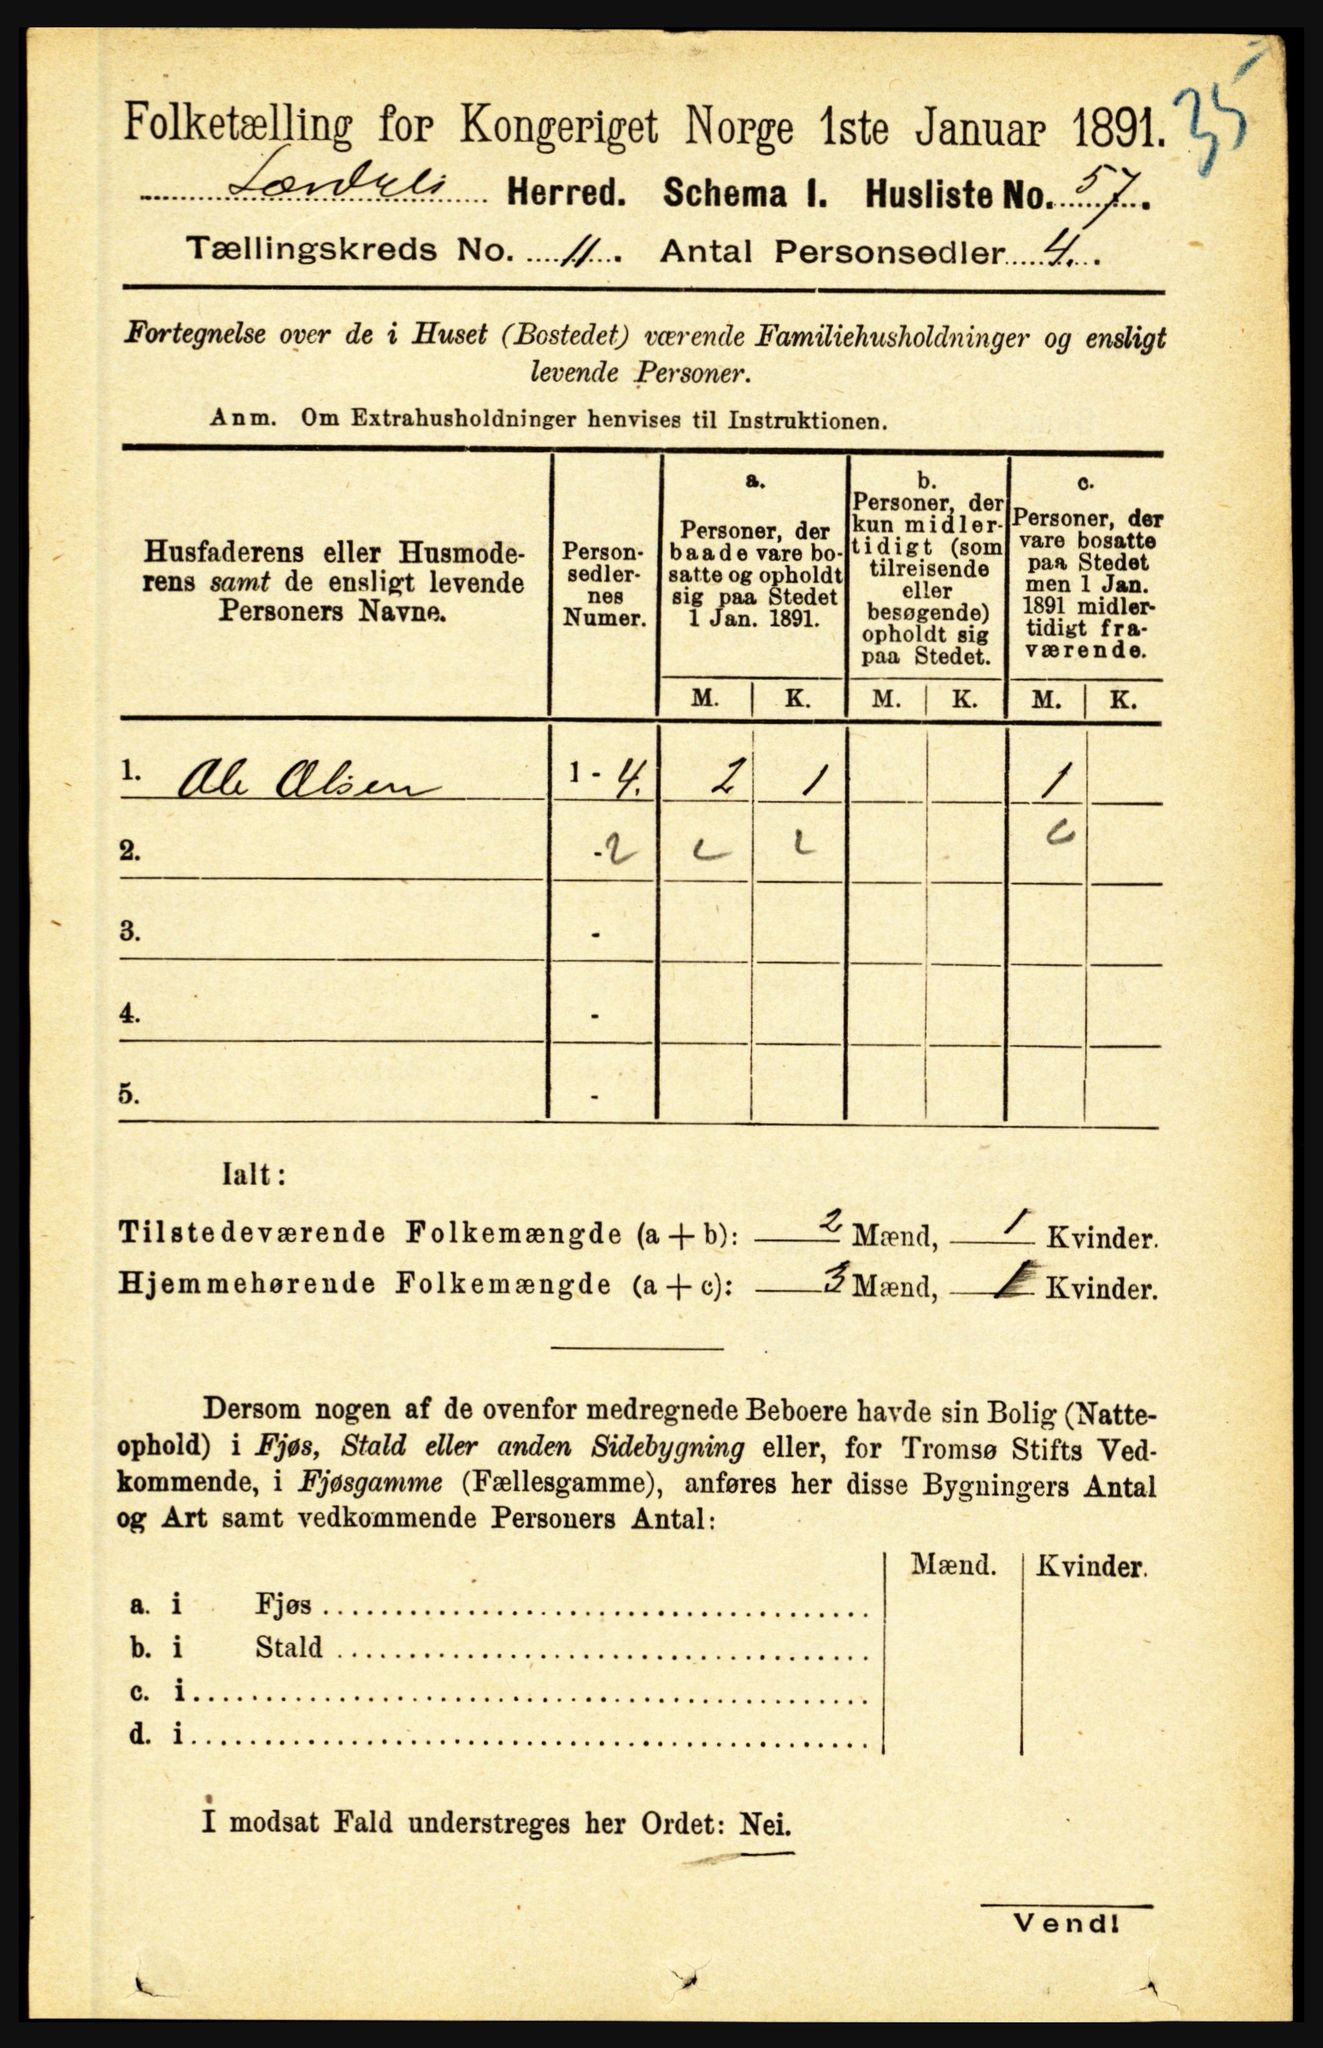 35
Folketælling for Kongeriget Norge 1ste Januar 1891.
Lærdals Herred. Schema I. Husliste No. 57.
Tællingskreds No. 11. Antal Personsedler 4.
Fortegnelse over de i Huset (Bostedet) værende Familiehusholdninger og ensligt
levende Personer.
Anm. Om Extrahusholdninger henvises til Instruktionen.
Husfaderens eller Husmode-
rens samt de ensligt levende
Personers Navne.
Person-
sedler-
nes
Numer.
a.
Personer, der
baade vare bo-
satte og opholdt
sig paa Stedet
1 Jan. 1891.
b.
Personer, der
kun midler-
tidigt (som
tilreisende
eller
besøgende)
opholdt sig
paa Stedet.
c.
Personer, der
vare bosatte
paa Stedet
men 1 Jan.
1891 midler-
tidigt fra-
værende.
M. K. M. K. M. K.
1. Ole Olsen 1 - 4. 2 1 1
2. -
3. -
4. -
5. -
Ialt:
Tilstedeværende Folkemængde (a + b): 2 Mænd, 1 Kvinder.
Hjemmehørende Folkemængde (a + c): 3 Mænd, 1 Kvinder.
Dersom nogen af de ovenfor medregnede Beboere havde sin Bolig (Natte-
ophold) i Fjøs, Stald eller anden Sidebygning eller, for Tromsø Stifts Ved-
kommende, i Fjøsgamme (Fællesgamme), anføres her disse Bygningers Antal
og Art samt vedkommende Personers Antal:
Mænd. Kvinder.
a. i Fjøs
b. i Stald
c. i
d. i
I modsat Fald understreges her Ordet: Nei.
Vend!